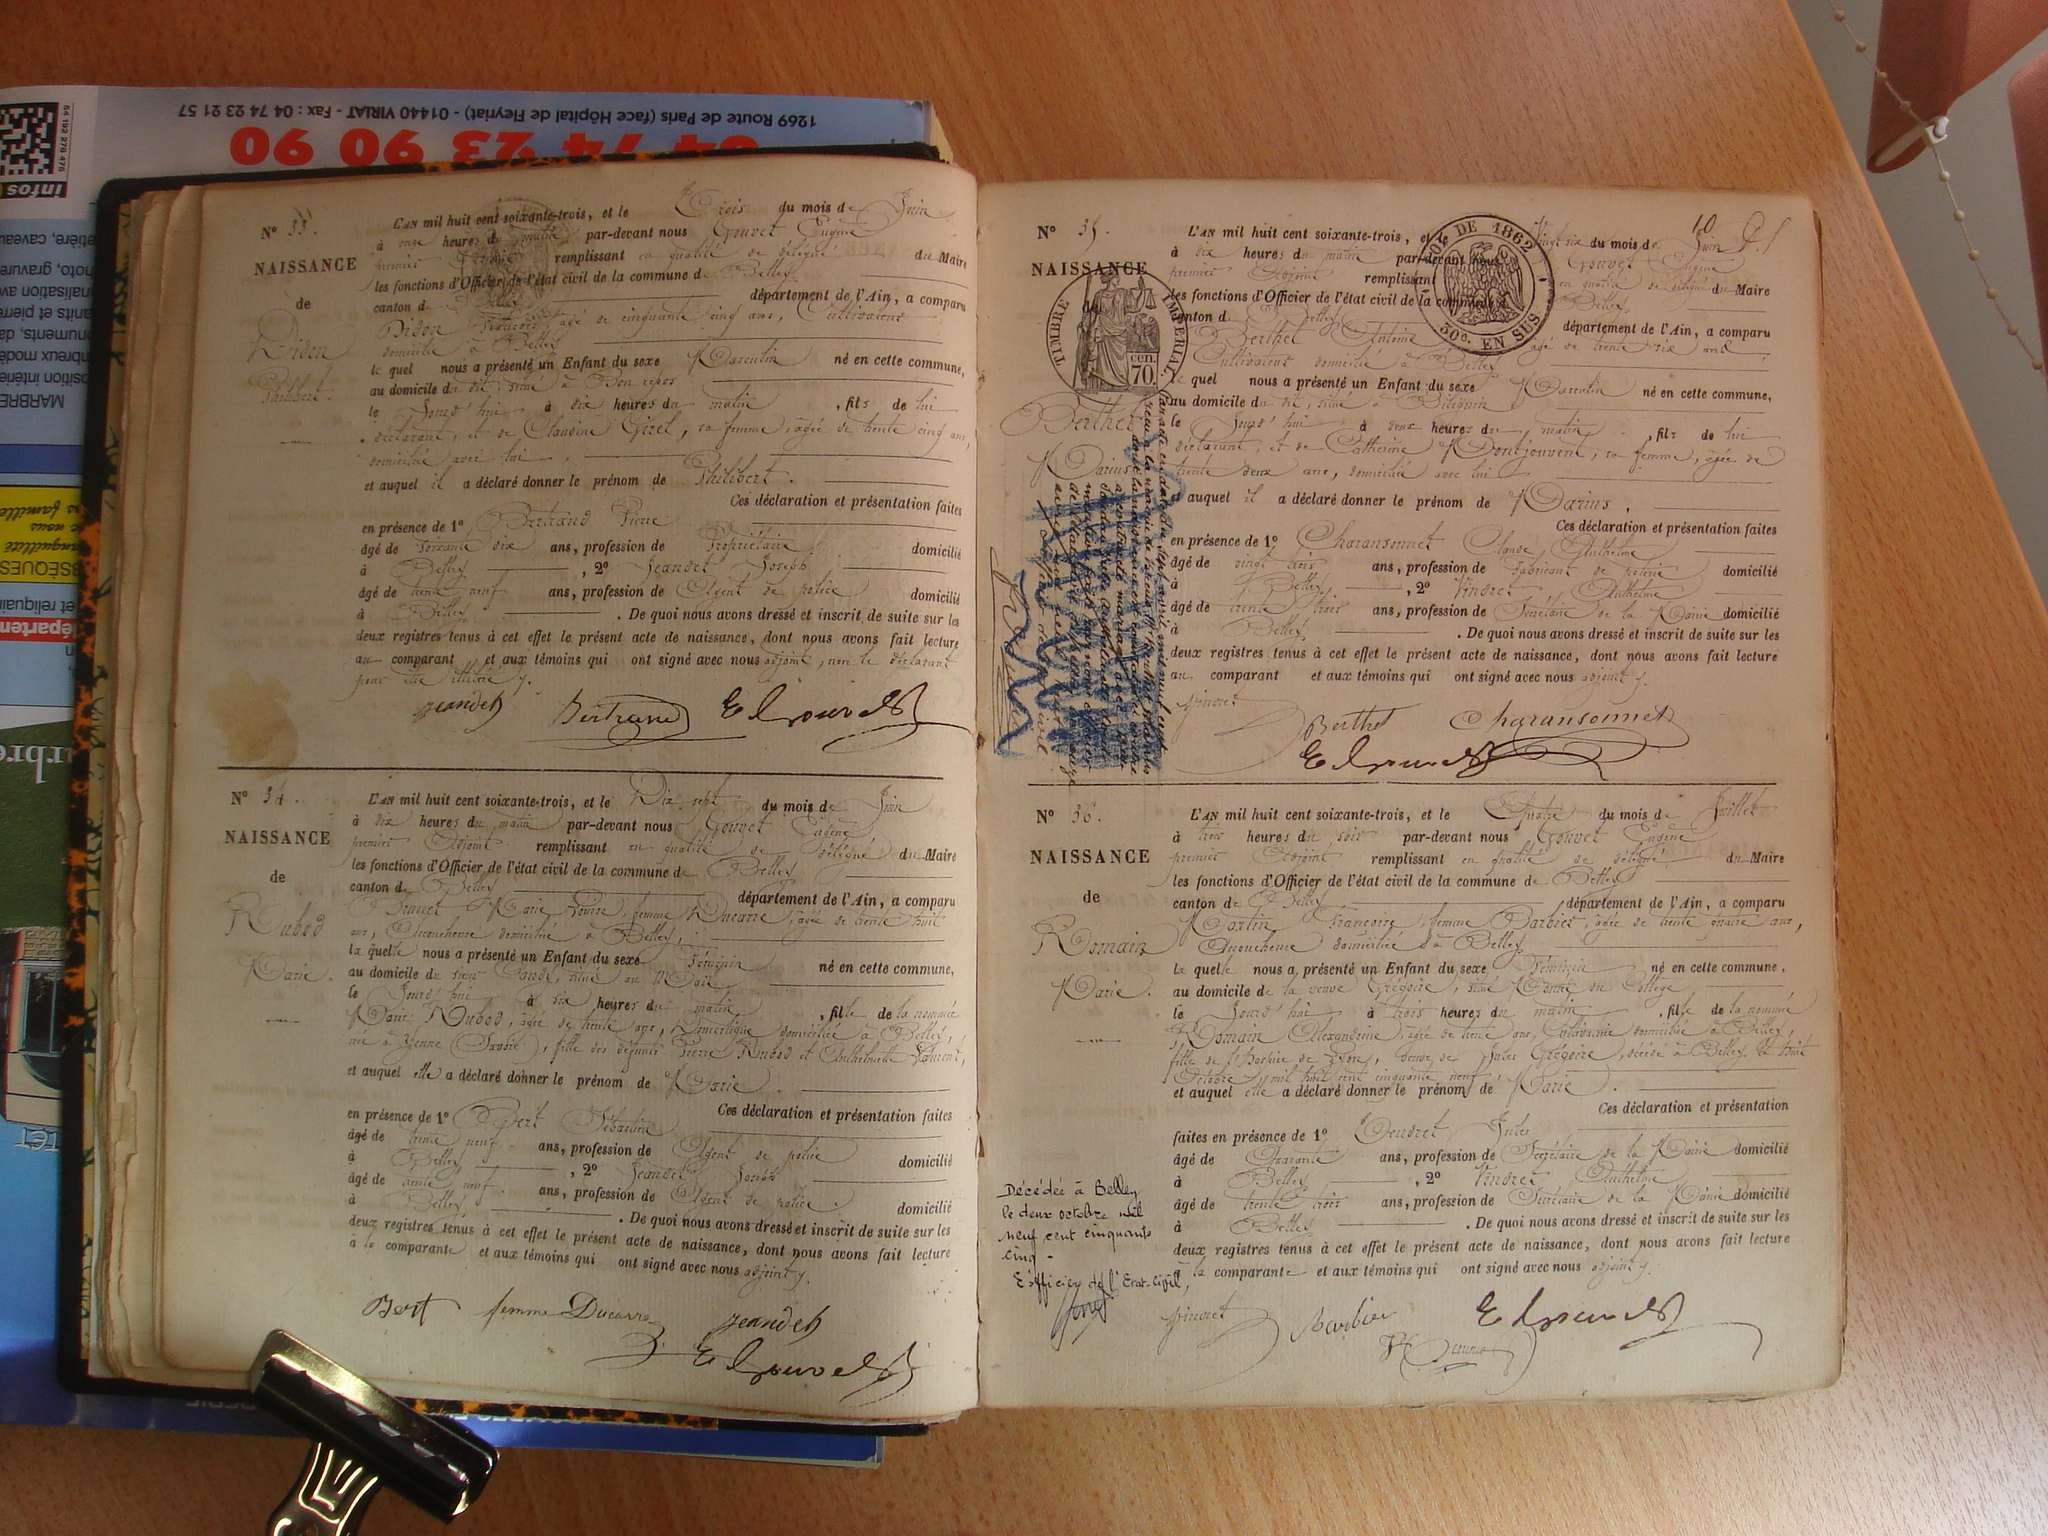 1269 Route de Paris (face Hôpital de Fleyriat) - 01440 VIRIAT - Fax : 04 74 23 21 57
04 74 23 90 90
infos
MARBRE
N° 33.
NAISSANCE
de
Didon
Philibert.
L'AN mil huit cent soixante-trois, et le Trois du mois de Juin
à onze heures du matin par-devant nous Gouvet Eugène
premier Adjoint remplissant en qualité de délégué du Maire
les fonctions d'Officier de l'état civil de la commune de Belley
canton de Belley département de l'Ain, a comparu
Didon François, âgé de cinquante cinq ans, Cultivateur
domicilié à Belley
le quel nous a présenté un Enfant du sexe Masculin né en cette commune,
au domicile du dit, situé à Bon repos
le Jourd'hui à dix heures du matin, fils de lui
déclarant, et de Claudine Girel, sa femme, âgée de trente cinq ans,
domiciliée avec lui
et auquel il a déclaré donner le prénom de Philibert.
Ces déclaration et présentation faites
en présence de 1° Bertrand Pierre
âgé de soixante dix ans, profession de Propriétaire domicilié
à Belley, 2° Jeandet Joseph
âgé de trente neuf ans, profession de Agent de police domicilié
à Belley. De quoi nous avons dressé et inscrit de suite sur les
deux registres tenus à cet effet le présent acte de naissance, dont nous avons fait lecture
au comparant et aux témoins qui ont signé avec nous adjoint, non le déclarant
pour être illettré
Jeandet Bertrand E Gouvet
N° 34.
NAISSANCE
de
Rubod
Marie.
L'AN mil huit cent soixante-trois, et le Dix sept du mois de Juin
à dix heures du matin par-devant nous Gouvet Eugène
premier Adjoint remplissant en qualité de délégué du Maire
les fonctions d'Officier de l'état civil de la commune de Belley
canton de Belley département de l'Ain, a comparu
Marie Louise, femme Ducarre, âgée de trente huit
ans, Accoucheuse domiciliée à Belley,
la quelle nous a présenté un Enfant du sexe Féminin né en cette commune,
au domicile du sieur situé au Mail
le Jourd'hui à six heures du matin, fille de la nommée
Marie Rubod, âgée de trente ans, Domestique domiciliée à Belley,
née à Yenne (Savoie), fille des défunts Pierre Rubod et Anthelmette Laurent,
et auquel elle a déclaré donner le prénom de Marie.
Ces déclaration et présentation faites
en présence de 1° Bert Sébastien
âgé de trente neuf ans, profession de Agent de police domicilié
à Belley, 2° Jeandet Joseph
âgé de trente neuf ans, profession de Agent de police domicilié
à Belley. De quoi nous avons dressé et inscrit de suite sur les
deux registres tenus à cet effet le présent acte de naissance, dont nous avons fait lecture
à la comparante et aux témoins qui ont signé avec nous adjoint
Bert femme Ducarre Jeandet
E Gouvet
10
N° 35.
NAISSANCE
de
Berthet
Marius
TIMBRE IMPERIAL
70 cen.
DE 1862
50c. EN SUS
L'AN mil huit cent soixante-trois, et le Vingt six du mois de Juin
à dix heures du matin par-devant nous Gouvet Eugène
premier Adjoint remplissant en qualité de délégué du Maire
les fonctions d'Officier de l'état civil de la commune de Belley
canton de Belley département de l'Ain, a comparu
Berthet Antoine âgé de trente six ans
Cultivateur domicilié à Belley
le quel nous a présenté un Enfant du sexe Masculin né en cette commune,
au domicile du dit, situé à Billignin
le Jourd'hui à deux heures du matin, fils de lui
déclarant, et de Catherine Montjouvent, sa femme, âgée de
trente deux ans, domiciliée avec lui
et auquel il a déclaré donner le prénom de Marius.
Ces déclaration et présentation faites
en présence de 1° Charansonnet Claude Anthelme
âgé de vingt trois ans, profession de fabricant de poterie domicilié
à Belley, 2° Vindret Anthelme
âgé de trente trois ans, profession de Secrétaire de la Mairie domicilié
à Belley. De quoi nous avons dressé et inscrit de suite sur les
deux registres tenus à cet effet le présent acte de naissance, dont nous avons fait lecture
au comparant et aux témoins qui ont signé avec nous adjoint
Vindret Berthet Charansonnet
E Gouvet
N° 36.
NAISSANCE
de
Romain
Marie.
L'AN mil huit cent soixante-trois, et le Quatre du mois de Juillet
à trois heures du soir par-devant nous Gouvet Eugène
premier Adjoint remplissant en qualité de délégué du Maire
les fonctions d'Officier de l'état civil de la commune de Belley
canton de Belley département de l'Ain, a comparu
Martin Françoise, femme Barbier, âgée de trente quatre ans,
Accoucheuse domiciliée à Belley
la quelle nous a présenté un Enfant du sexe Féminin né en cette commune,
au domicile de la veuve Grégoire, situé Montée du Collège,
le Jourd'hui à trois heures du matin, fille de la nommée
Romain Alexandrine, âgée de trente ans, domiciliée à Belley,
fille de l'hospice de Lyon, veuve de Jules Grégoire, décédé à Belley le huit
Octobre mil huit cent cinquante neuf,
et auquel elle a déclaré donner le prénom de Marie.
Ces déclaration et présentation
faites en présence de 1° Jules
âgé de Quarante ans, profession de Secrétaire de la Mairie domicilié
à Belley, 2° Vindret Anthelme
âgé de trente trois ans, profession de Secrétaire de la Mairie domicilié
à Belley. De quoi nous avons dressé et inscrit de suite sur les
deux registres tenus à cet effet le présent acte de naissance, dont nous avons fait lecture
à la comparante et aux témoins qui ont signé avec nous adjoint
Vindret Barbier E Gouvet
Décédée à Belley
le deux octobre mil
neuf cent cinquante
cinq -
L'officier de l'Etat-civil,